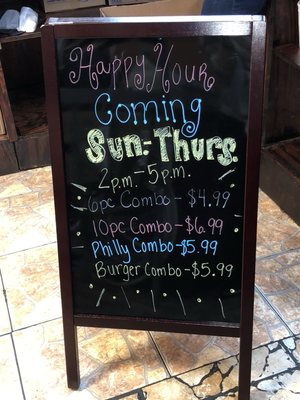 Happy Hour
Coming
Sun.-Thurs.
2p.m.-5p.m.
6pc Combo-$4.99
10pc Combo-$6.99
Philly Combo-$5.99
Burger Combo-$5.99